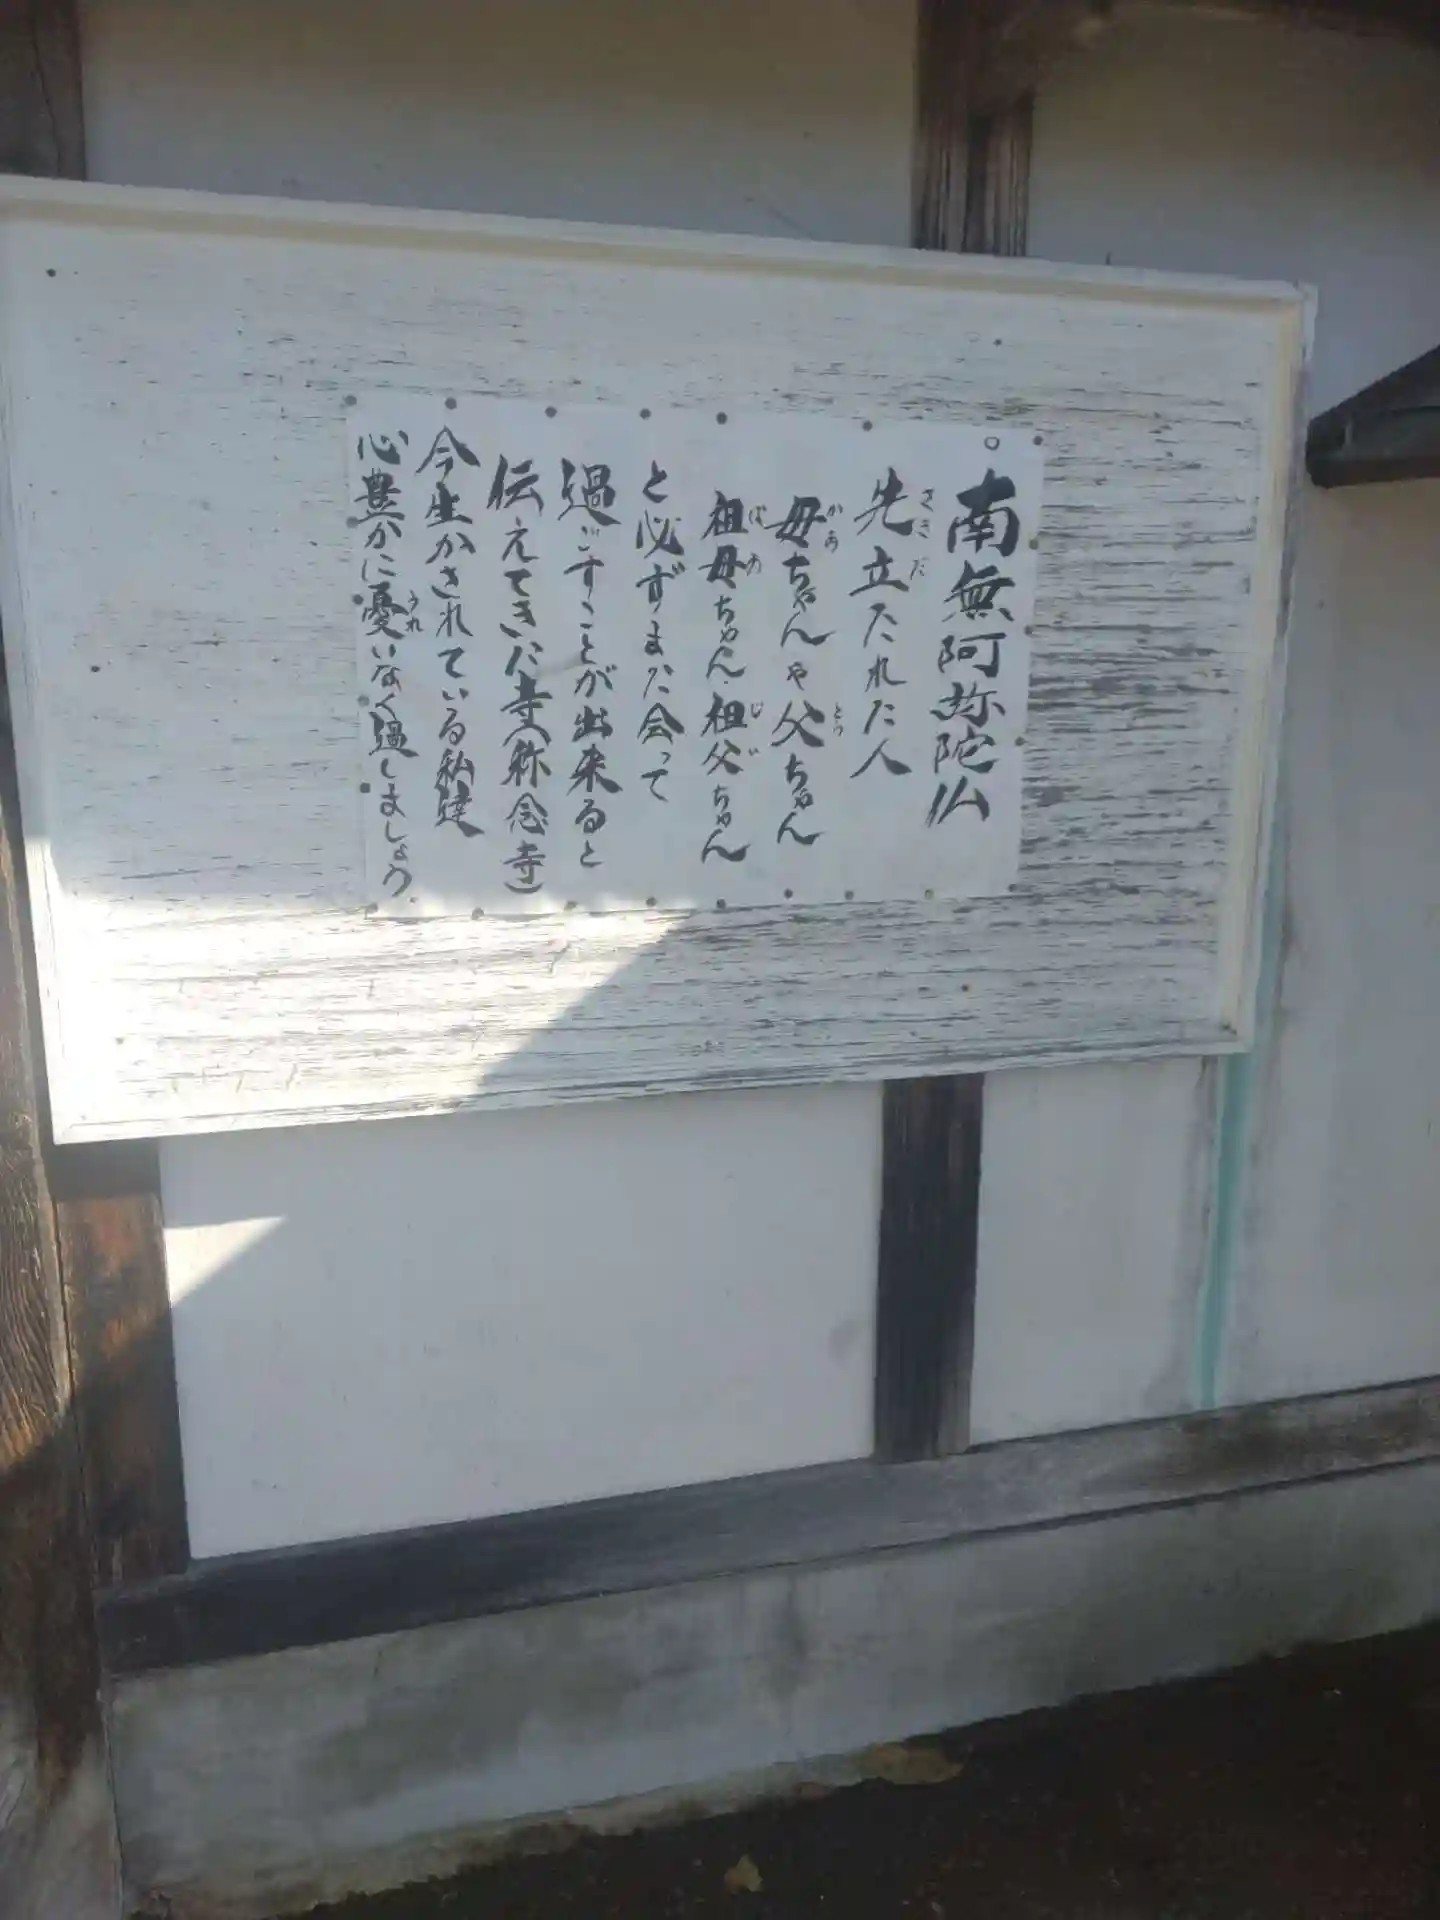 ○南無阿弥陀仏
先立たれた人
母ちゃんや父ちゃん
祖母ちゃん・祖父ちゃん
と必ずまた会って
過ごすことが出来ると
伝えてきた寺(称念寺)
今生かされている私達
心豊かに憂いなく過しましょう。
さきだ
かあ
とう
ばあ
じい
うれ